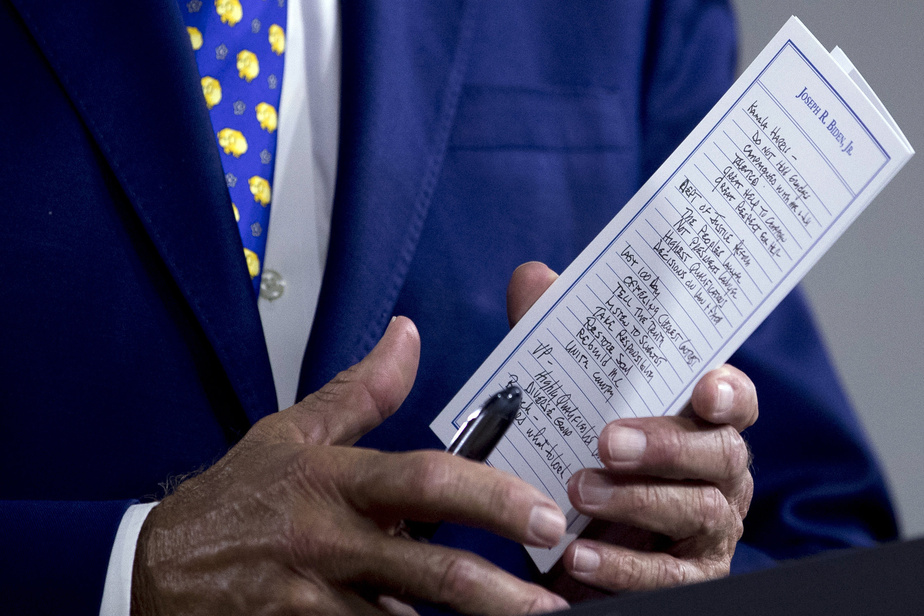 JOSEPH R. BIDEN, JR.
KAMALA HARRIS -
DO NOT HOLD GRUDGES
CAMPAIGNED WITH ME & JILL
TALENTED
GREAT HELP TO CAMPAIGN
GREAT RESPECT FOR HER
DEPT OF JUSTICE
THE PEOPLES LAWYER
NOT PRESIDENT LAWYER
HIGHEST QUALIFICATIONS
DECISIONS ON LAW &
LAST 100 DAYS
TELL THE TRUTH
LISTEN TO SCIENTIST
TAKE RESPONSIBILITY
RESTORE SOUL
REBUILD M.C
UNITE COUNTRY
VP - HIGHLY QUALIFIED
DIVERSE GROUP
WHAT TO LOOK